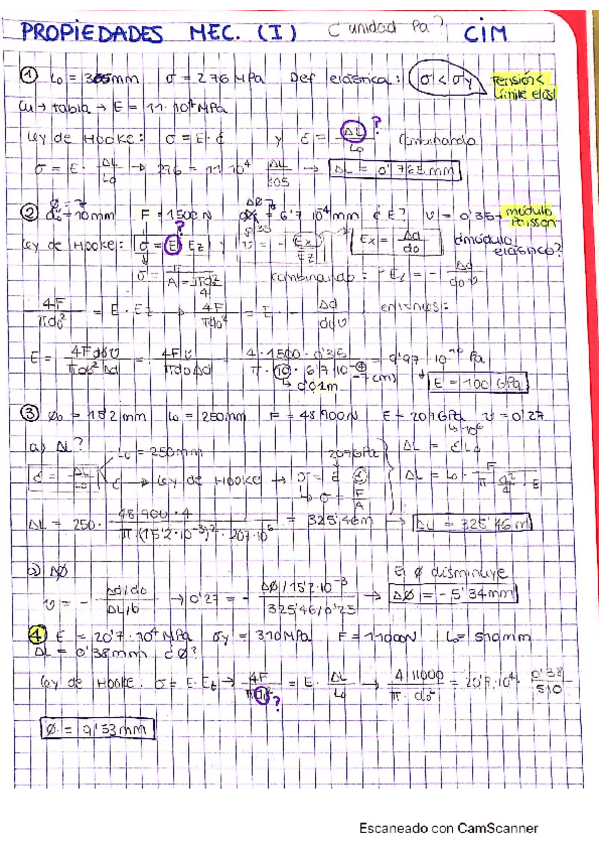 PROPIEDADES MEC. (I) ¿ unidad Pa? CIM
① L₀ = 305mm σ = 276 MPa Def elástica: σ < σy Tensión < Límite elást
Cu → tabla → E = 11·10⁴ MPa
Ley de Hooke: σ = E·ε y ε = ΔL/L₀ ? combinando
σ = E· ΔL/L₀ → 276 = 11·10⁴ ΔL/305 → ΔL = 0'765 mm
② d₀ = 10mm F = 1500N = 6'7·10⁻⁴ mm ¿E? υ = 0'35 → módulo Poisson
Ley de Hooke: σ = E εz y υ = - εx/εz εx = Δd/d₀ ¿módulo elástico?
σ = F/A = πd₀²/4 combinando: εz = - Δd/d₀υ
4F/πd₀² = E · εz → 4F/πd₀² = E · - Δd/d₀υ entonces:
E = 4Fd₀υ/πd₀²Δd = 4Fυ/πd₀Δd = 4·1500·0'35/π·10·6'7·10 = 9'97·10¹⁰ Pa
0'01m (cm) E = 100 GPa
③ φ₀ = 15'2 mm L₀ = 250mm F = 48 900N E = 207GPa υ = 0'27
a) ΔL? L₀ = 250mm 207GPa ΔL = εL₀
ε = ΔL/L₀ ε → Ley de Hooke → σ = E ε ΔL = L₀·
σ = F/A
ΔL = 250· 48 900·4/π·(15'2·10⁻³)²·207·10⁶ = 325'46m → ΔL = 325'46 m
b) Δφ El φ disminuye
υ = - Δd/d₀/ΔL/L₀ → 0'27 = - Δφ/15'2·10⁻³/325'46/0'25 → Δφ = -5'34mm
④ E = 20'7·10⁴ MPa σy = 310 MPa F = 11000N L₀ = 510mm
ΔL = 0'38mm ¿φ?
Ley de Hooke: σ = E·εt → 4F/πd₀² = E· ΔL/L₀ → 4·11000/π·d₀² = 20'7·10⁴· 0'38/510
?
φ = 9'53mm
Escaneado con CamScanner